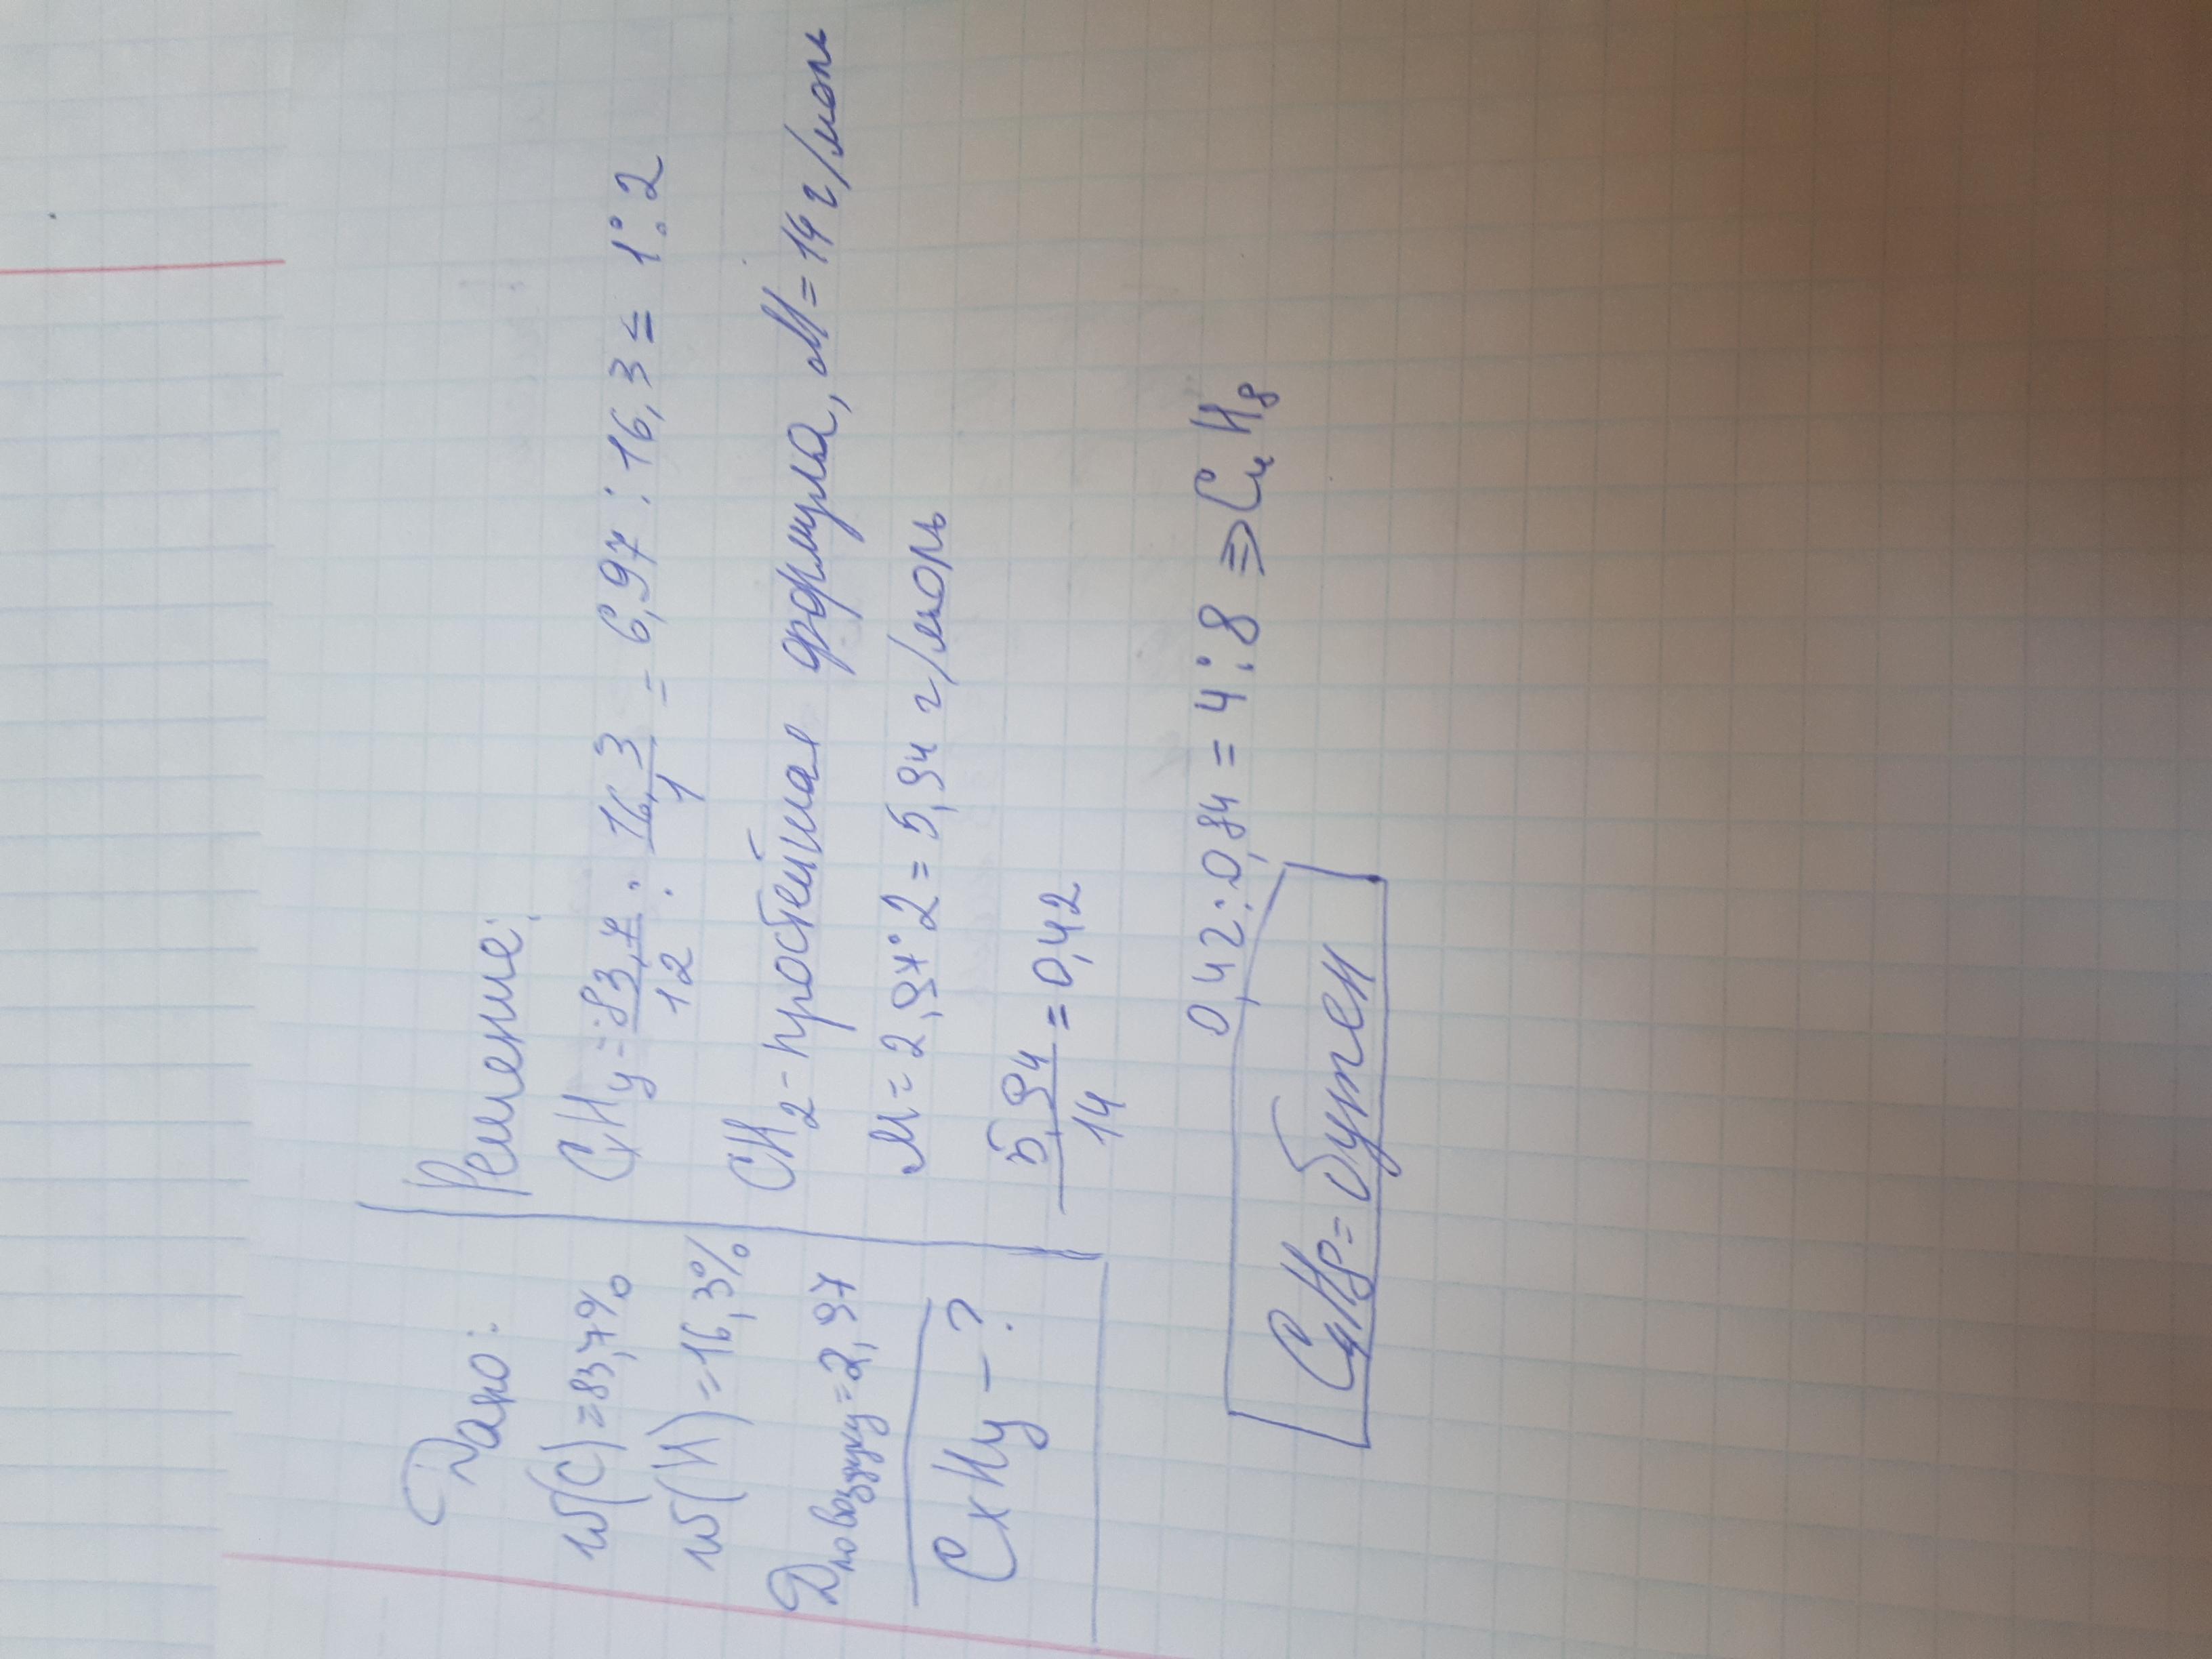 Дано:
w(C)=83,7%
w(H)=16,3%
Д по воздуху=2,97
CxHy - ?
Решение:
CxHy = 83,7/12 : 16,3/1 = 6,97 : 16,3 = 1:2
CH2 - простейшая формула, M=14 г/моль
M = 2,97·2 = 5,94 г/моль
5,94/14 = 0,42
0,42:0,84 = 4:8 ⇒ C4H8
C4H8 = бутен